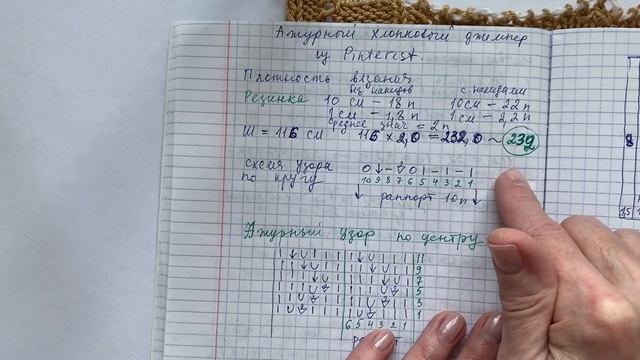 Ажурный хлопковый джемпер
из Pinterest.
Плотность вязания
без накидов с накидами
Резинка 10 см – 18 п 10 см – 22 п
1 см – 1,8 п 1 см – 2,2 п
среднее знач = 2 п
Ш = 116 см 116 × 2,0 = 232,0 ~ 232
схема узора
по кругу
10 9 8 7 6 5 4 3 2 1
раппорт 10 п
Ажурный узор по центру
11
9
7
5
3
1
6 5 4 3 2 1
8
15